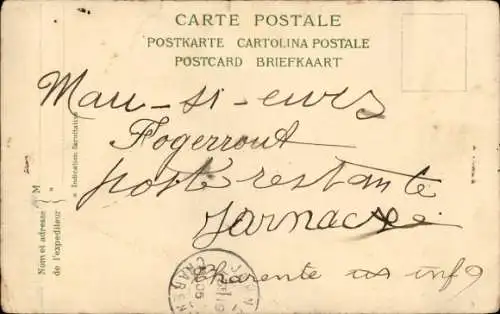 CARTE POSTALE
POSTKARTE CARTOLINA POSTALE
POSTCARD BRIEFKAART
Mau-si-eurs
Fogerrout
poste restante
Jarnac
Charente
Nom et adresse { M
de l'expéditeur { "
« Indication facultative